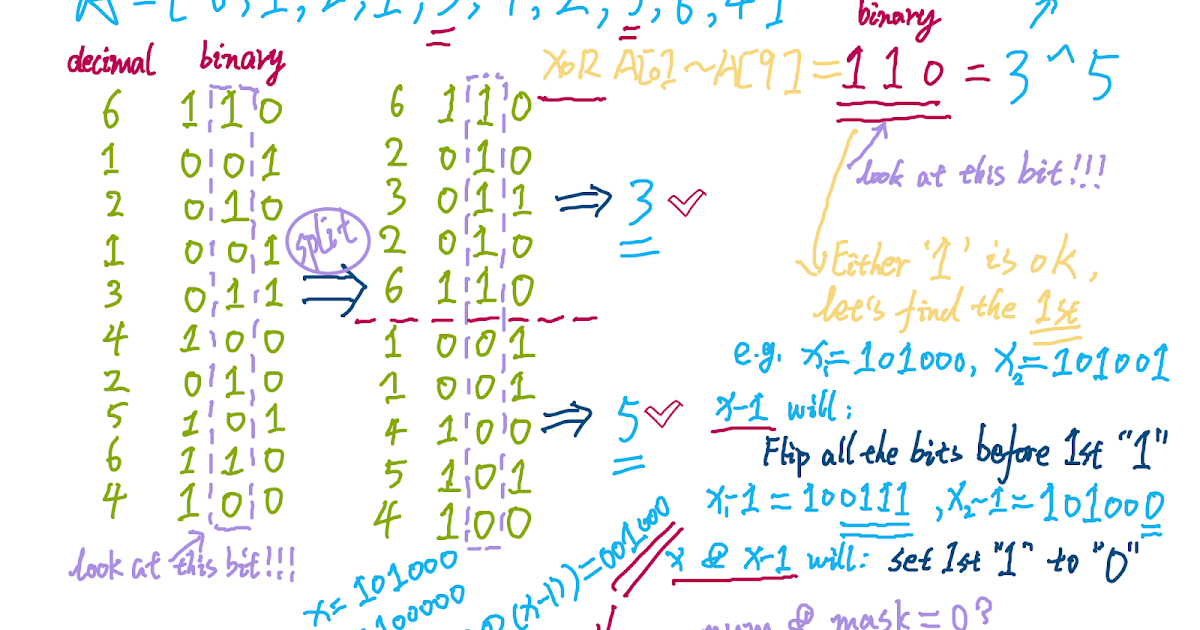 A = [6, 1, 2, 1, 3, 4, 2, 5, 6, 4]
binary
decimal binary
XOR A[0] ~ A[9] = 110 = 3 ^ 5
look at this bit!!!
6 110
1 001
2 010
1 001
3 011
4 100
2 010
5 101
6 110
4 100
look at this bit!!!
split
⇒
6 110
2 010
3 011
2 010
6 110
1 001
1 001
4 100
5 101
4 100
⇒ 3 ✓
⇒ 5 ✓
Either '1' is ok,
let's find the 1st
e.g. x₁=101000, x₂=101001
x-1 will:
Flip all the bits before 1st "1"
x₁-1 = 100111, x₂-1=101000
x & x-1 will: set 1st "1" to "0"
x = 101000
100000
(x-1))=001000
num & mask = 0?